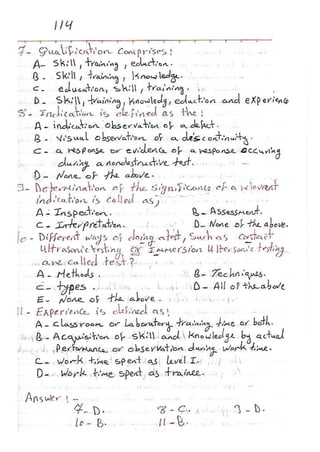 114
7- Qualification comprises:
A- Skill, training, eduction.
B- Skill, training, Knowledge.
C- education, skill, training.
D- Skill, training, Knowledg, eduction and experience
8- Indication is defined as the:
A- indication observation of a defect.
B- visual observation of a discontinuity.
C- a response or evidence of a response occuring
during a nondestructive test.
D- None of the above.
9- Determination of the significance of a relevant
indication is called as,
A- Inspection. B- Assessment.
C- Interpretation. D- None of the above.
10- Different ways of doing atest, Such as contact
Ultrasonic testing or Immersion Ultersonic testing
are called test?
A- Methods. B- Techniques.
C- types. D- All of the above
E- None of the above.
11- Experience is defined as:
A- classroom or Laboratory training time or both.
B- Acquisition of skill and Knowledge by actual
Performance or observation during work time.
C- work time spent as Level I.
D- Work time spent as trainee.
Answer:-
7- D. 8- C. 9- D.
10- B. 11- B.